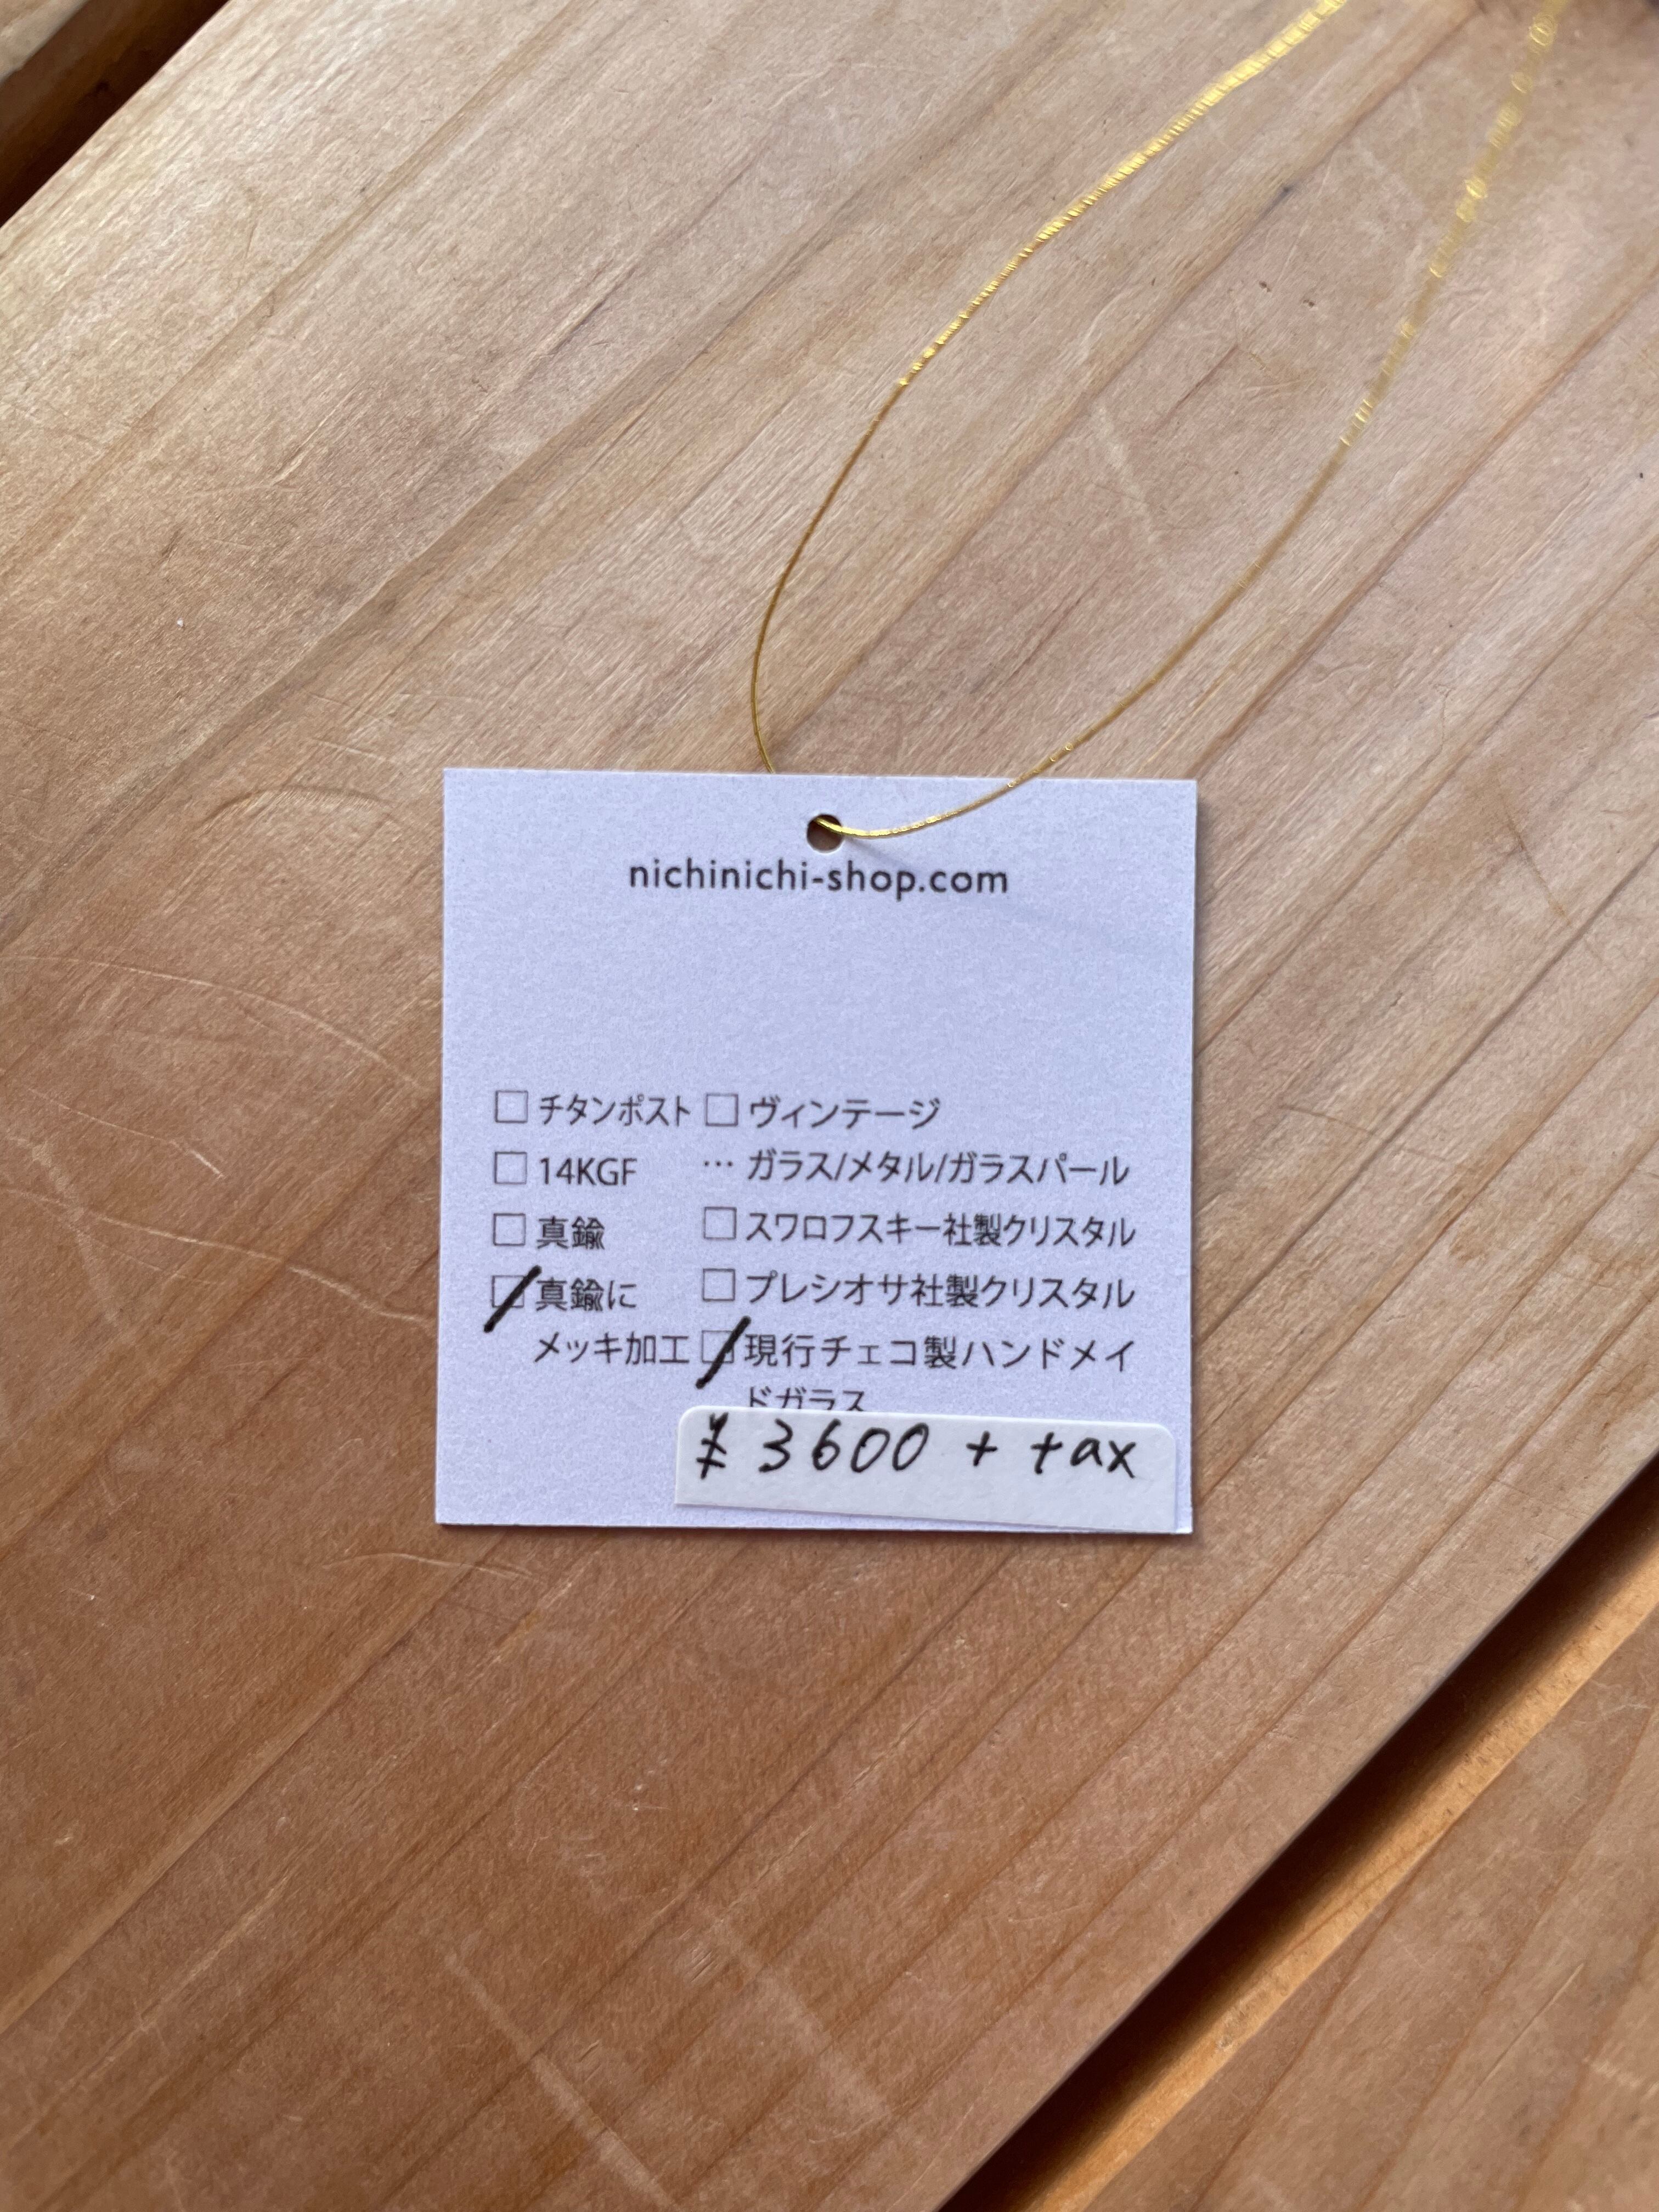 nichinichi-shop.com
□ チタンポスト
□ 14KGF
□ 真鍮
□ 真鍮に
メッキ加工
□ ヴィンテージ
… ガラス/メタル/ガラスパール
□ スワロフスキー社製クリスタル
□ プレシオサ社製クリスタル
□ 現行チェコ製ハンドメイ
ドガラス
¥ 3600 + tax